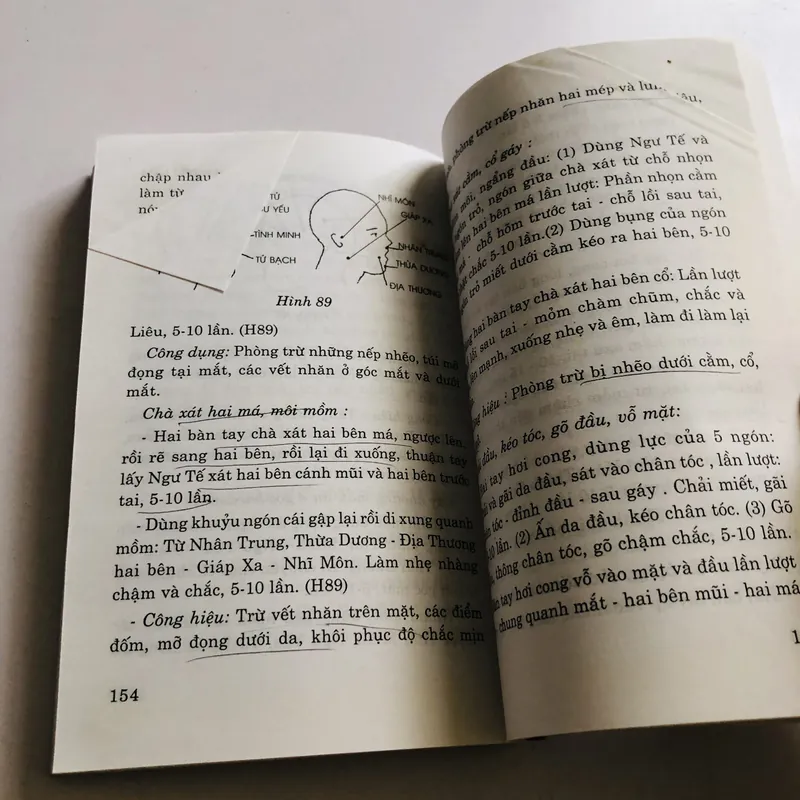 chập nhau
làm từ
TỬ
YẾU
TÌNH MINH
TỨ BẠCH
NHĨ MÔN
GIÁP XA
NHÂN
THỪA DƯƠNG
ĐỊA THƯƠNG
Hình 89
Liêu, 5-10 lần. (H89)
Công dụng: Phòng trừ những nếp nhẽo, túi mỡ
đọng tại mắt, các vết nhăn ở góc mắt và dưới
mắt.
Chà xát hai má, môi mồm :
- Hai bàn tay chà xát hai bên má, ngược lên,
rồi rẽ sang hai bên, rồi lại đi xuống, thuận tay
lấy Ngư Tế xát hai bên cánh mũi và hai bên trước
tai, 5-10 lần.
- Dùng khuỷu ngón cái gập lại rồi di xung quanh
mồm: Từ Nhân Trung, Thừa Dương - Địa Thương
hai bên - Giáp Xa - Nhĩ Môn. Làm nhẹ nhàng
chậm và chắc, 5-10 lần. (H89)
- Công hiệu: Trừ vết nhăn trên mặt, các điểm
đốm, mỡ đọng dưới da, khôi phục độ chắc mịn
154
phòng trừ nếp nhăn hai mép và
cằm, cổ gáy :
môi, ngẩng đầu: (1) Dùng Ngư Tế và
trỏ, ngón giữa chà xát từ chỗ nhọn
lên hai bên má lần lượt: Phần nhọn cằm
má - chỗ hõm trước tai - chỗ lồi sau tai,
chắc 5-10 lần.(2) Dùng bụng của ngón
trỏ miết dưới cằm kéo ra hai bên, 5-10
hai bàn tay chà xát hai bên cổ: Lần lượt
lồi sau tai - mỏm chàm chũm, chắc và
mạnh, xuống nhẹ và êm, làm đi làm lại
hiệu : Phòng trừ bị nhẽo dưới cằm, cổ,
đầu, kéo tóc, gõ đầu, vỗ mặt:
tay hơi cong, dùng lực của 5 ngón:
và gãi da đầu, sát vào chân tóc , lần lượt:
tóc - đỉnh đầu - sau gáy . Chải miết, gãi
lần. (2) Ấn da đầu, kéo chân tóc. (3) Gõ
thông chân tóc, gõ chậm chắc, 5-10 lần.
tay hơi cong vỗ vào mặt và đầu lần lượt
chung quanh mắt - hai bên mũi - hai má